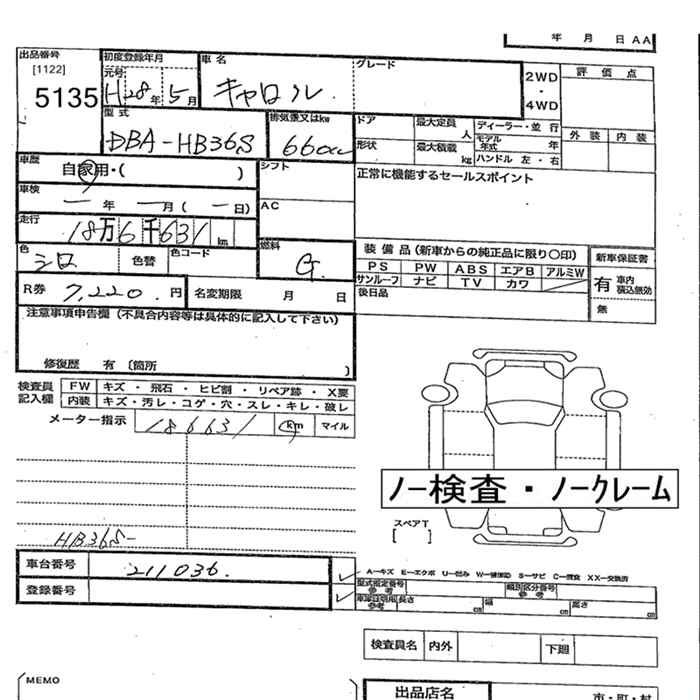 年 月 日 AA
出品番号 [1122] 5135
初度登録年月 元号 H28年5月
車名 キャロル
グレード
2WD・4WD
評価点
外装 内装
型式 DBA-HB36S
排気量又はkw 660cc
ドア 形状
最大定員 人
最大積載 kg
ディーラー・並行
モデル年式 年
ハンドル 左・右
車歴 自家用・( )
シフト
正常に機能するセールスポイント
車検 ー年ー月(ー日)
AC
走行 18万6千631km
色 シロ 色替 色コード
燃料 G.
装備品(新車からの純正品に限り〇印)
新車保証書
PS PW ABS エアB アルミW
サンルーフ ナビ TV カワ
有 車内積込無効
無
後日品
R券 7,220.円
名変期限 月 日
注意事項申告欄(不具合内容等は具体的に記入して下さい)
修復歴 有 〔箇所 )
検査員記入欄
FW キズ・飛石・ヒビ割・リペア跡・X要
内装 キズ・汚レ・コゲ・穴・スレ・キレ・破レ
メーター指示 186631 km マイル
ノー検査・ノークレーム
スペアT
[ ]
HB36S-
車台番号 211036.
登録番号
A―キズ E―エクボ U―凹み S―サビ C―腐食 XX―交換済
型式指定番号 参考
類別区分番号 参考
長さ cm 幅 cm 高さ cm
検査員名 内外 下廻
MEMO
出品店名
市・町・村